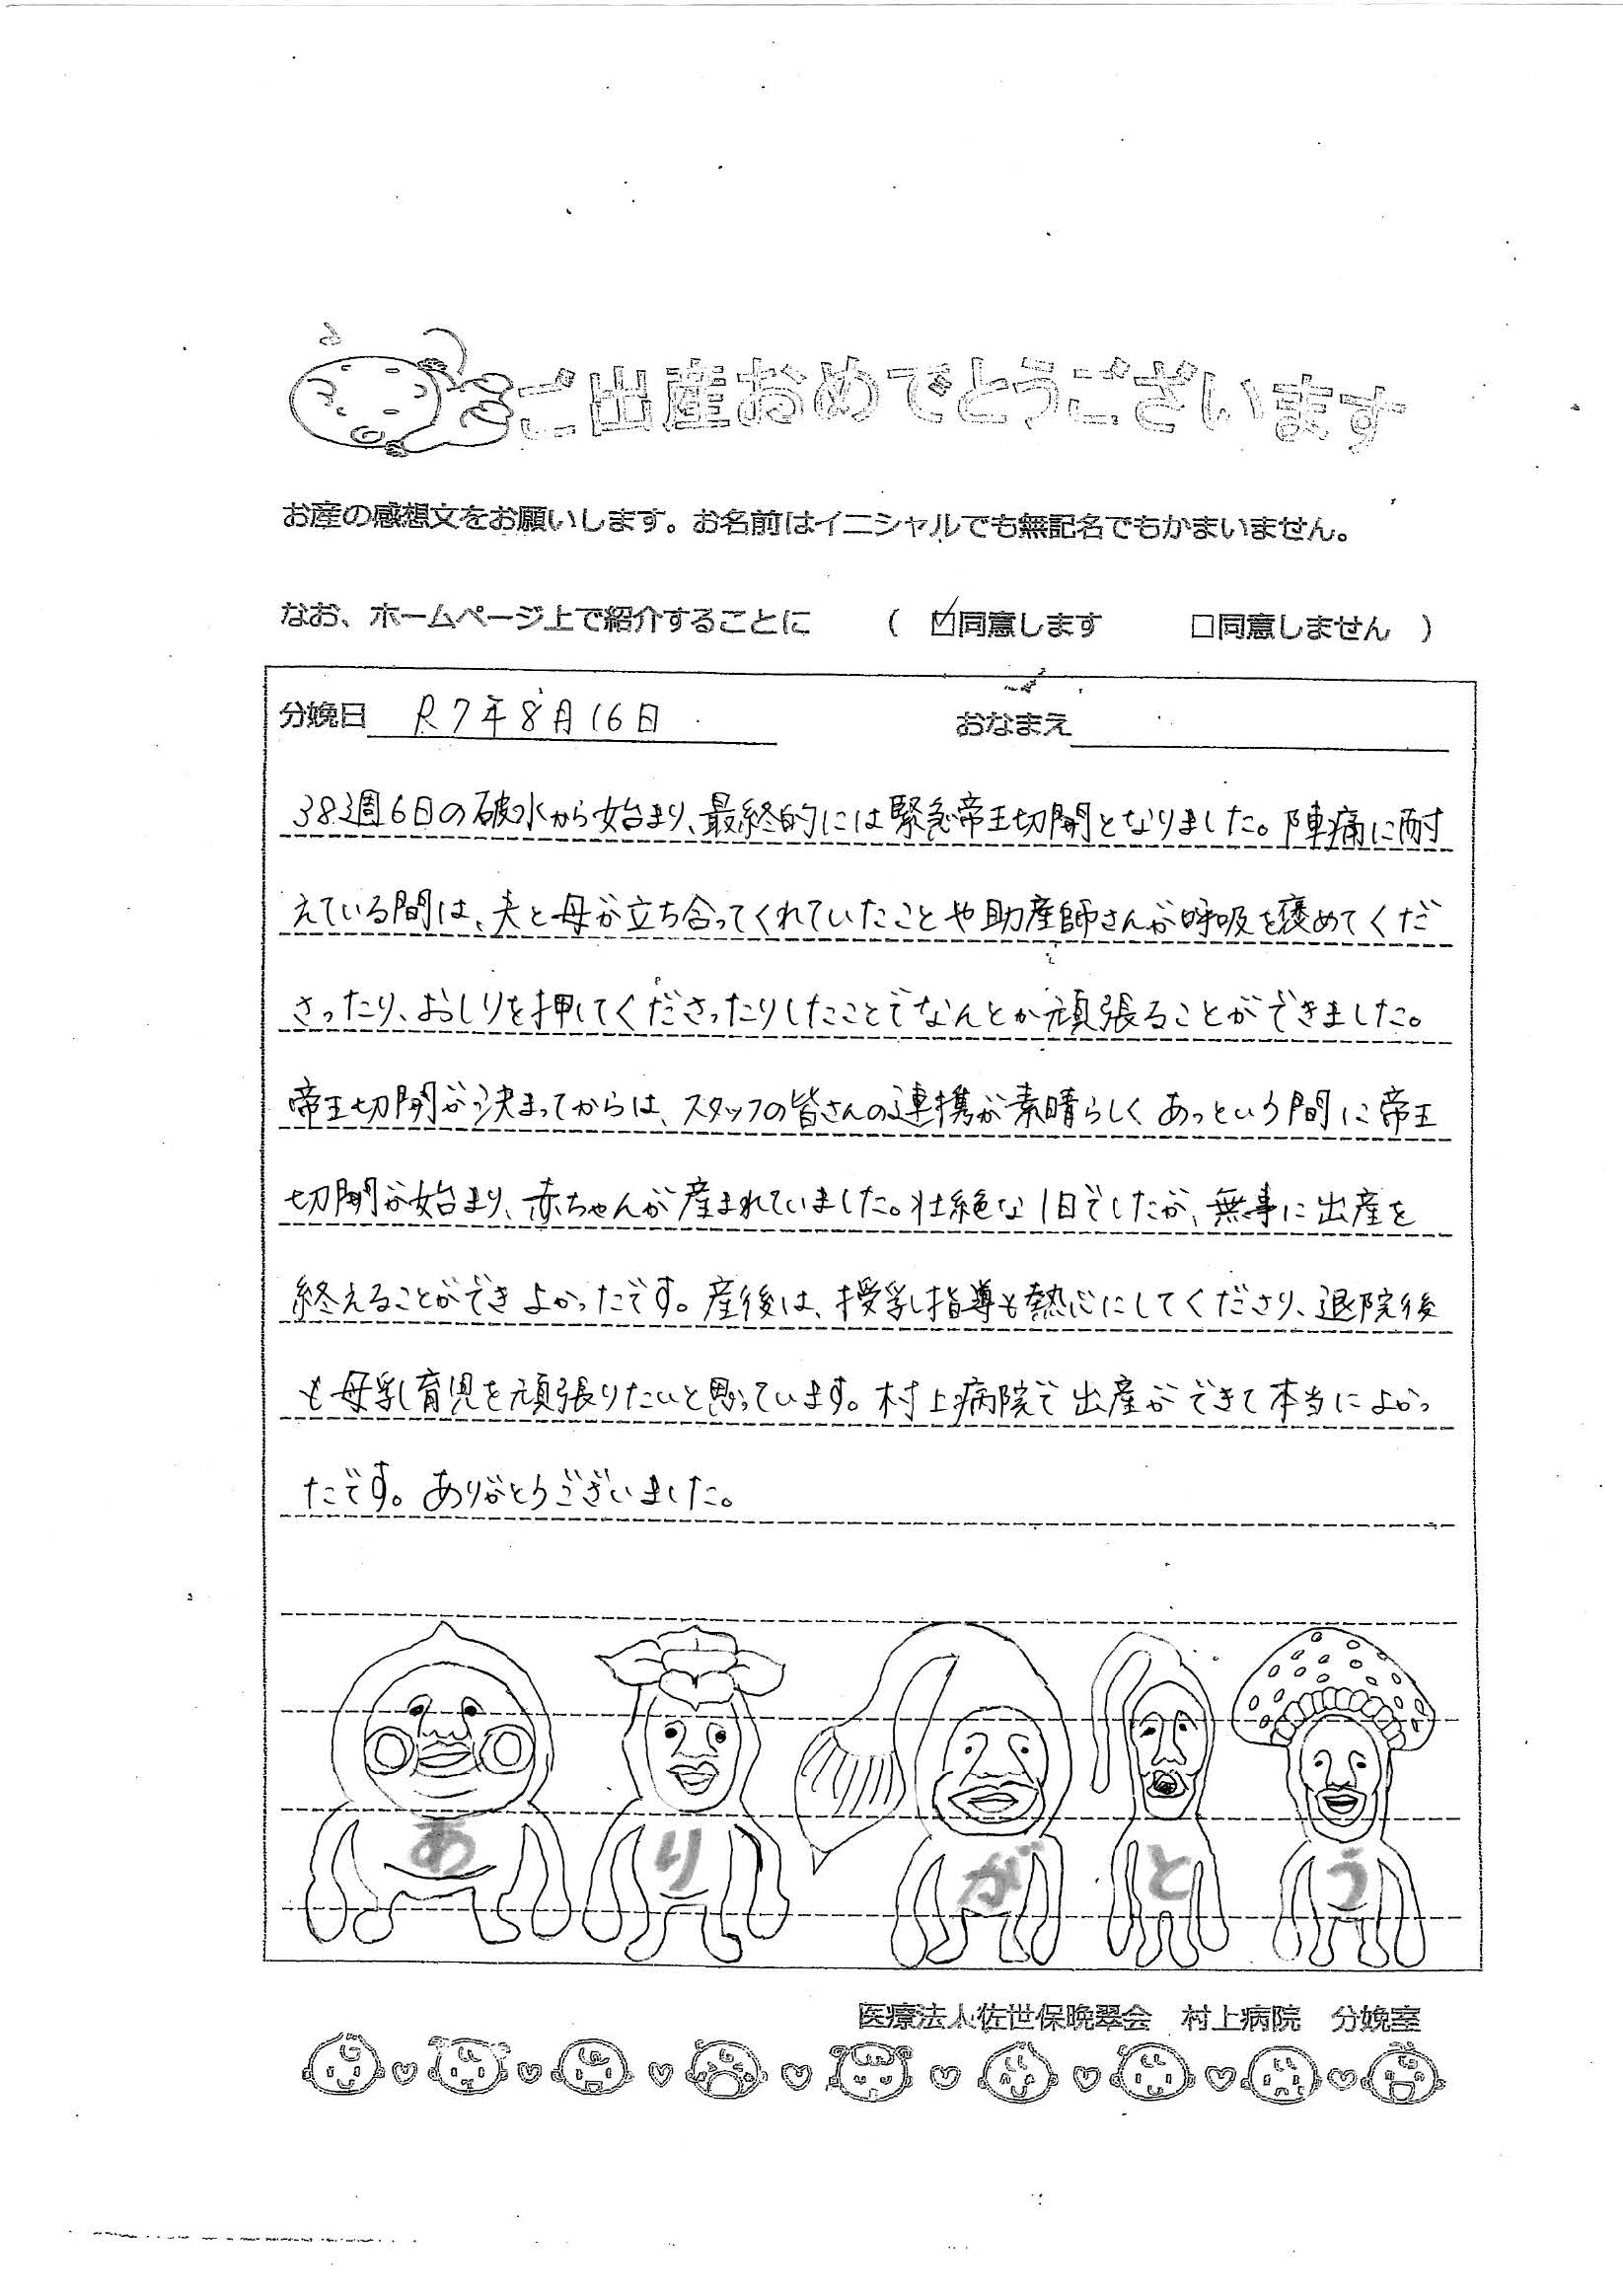 ご出産おめでとうございます
お産の感想文をお願いします。お名前はイニシャルでも無記名でもかまいません。
なお、ホームページ上で紹介することに ( ☑同意します □同意しません )
分娩日 R7年8月16日 おなまえ
38週6日の破水から始まり、最終的には緊急帝王切開となりました。陣痛に耐
えている間は、夫と母が立ち合ってくれていたことや助産師さんが呼吸を褒めてくだ
さったり、おしりを押してくださったりしたことでなんとか頑張ることができました。
帝王切開が決まってからは、スタッフの皆さんの連携が素晴らしくあっという間に帝王
切開が始まり、赤ちゃんが産まれていました。壮絶な1日でしたが、無事に出産を
終えることができよかったです。産後は、授乳指導も熱心にしてくださり、退院後
も母乳育児を頑張りたいと思っています。村上病院で出産ができて本当によかっ
たです。ありがとうございました。
ありがとう
医療法人佐世保晩翠会 村上病院 分娩室